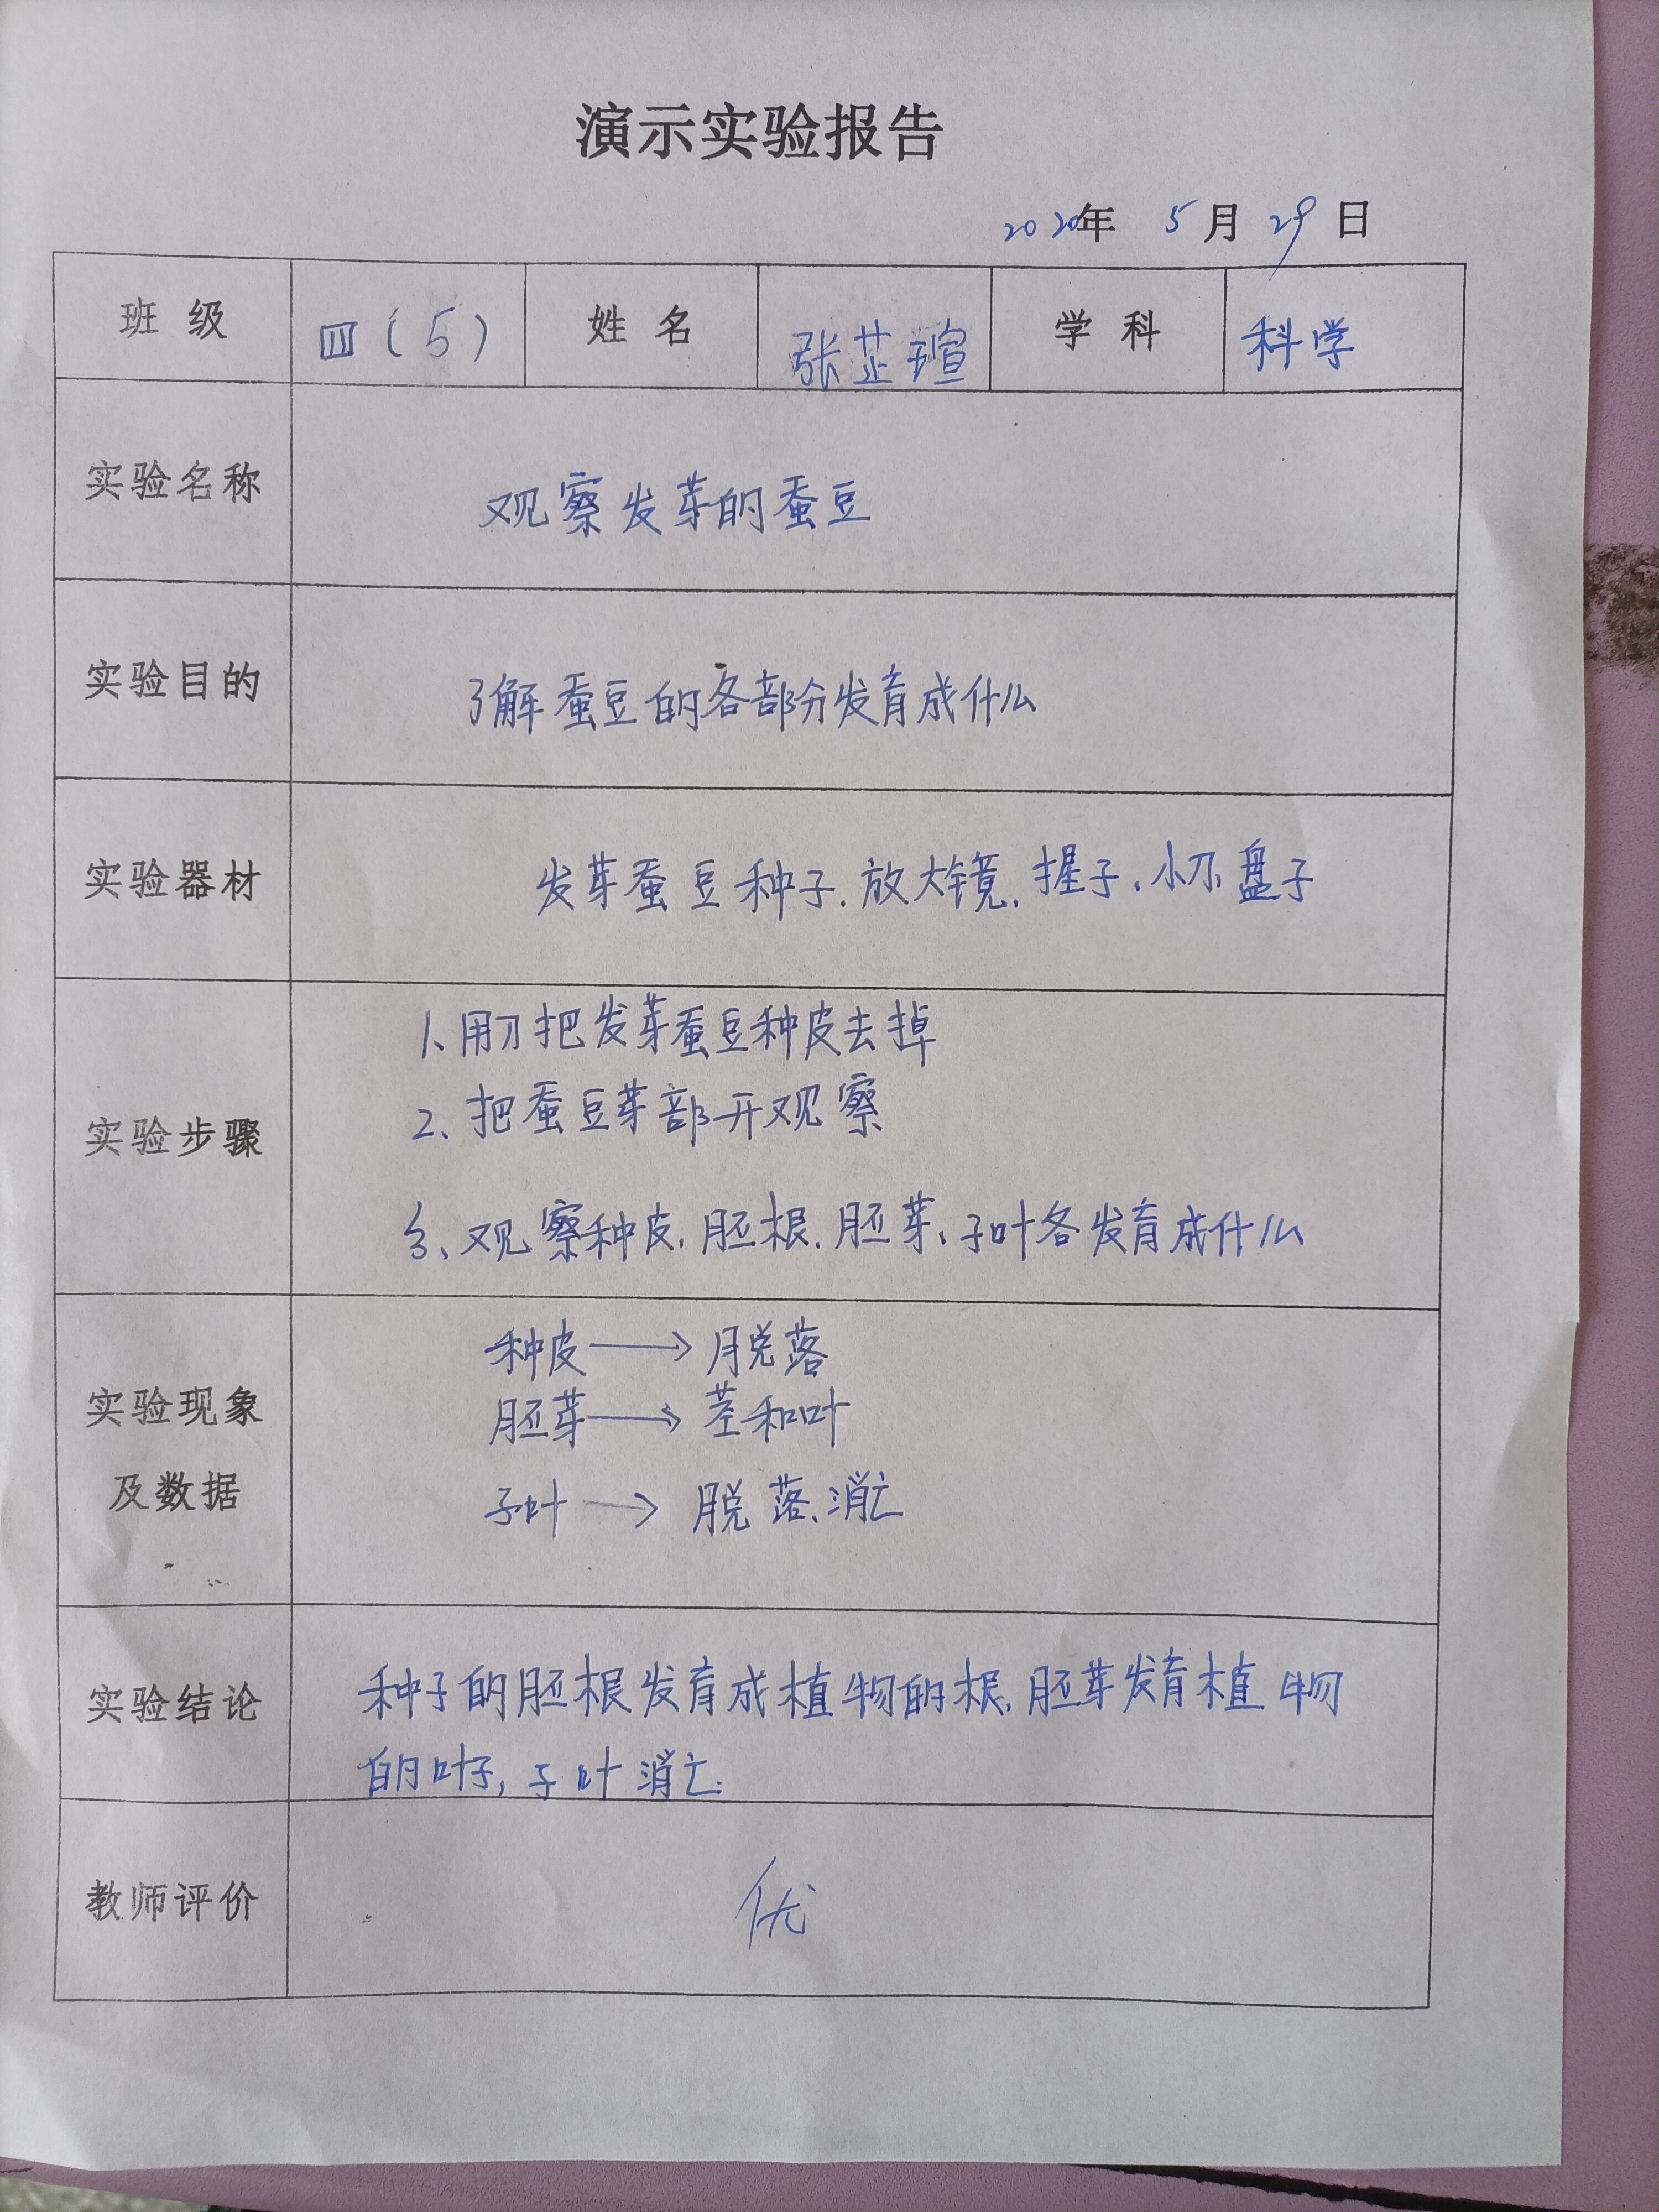 演示实验报告
2020年 5月 29日
班级 四(5) 姓名 张芷瑄 学科 科学
实验名称 观察发芽的蚕豆
实验目的 了解蚕豆的各部分发育成什么
实验器材 发芽蚕豆种子.放大镜.握子.小刀.盘子
1.用刀把发芽蚕豆种皮去掉
2.把蚕豆芽部开观察
实验步骤
3、观察种皮.胚根.胚芽.子叶各发育成什么
种皮→脱落
实验现象 胚芽→茎和叶
及数据 子叶→脱落.消亡
实验结论 种子的胚根发育成植物的根.胚芽发育植物
的叶子,子叶消亡.
教师评价 优